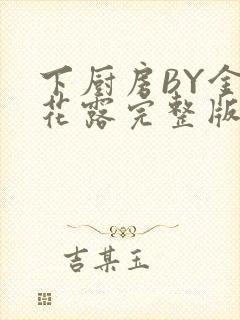 下厨房BY金
花露完整版
吉某玉